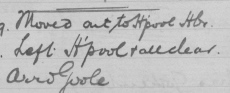 9. Moved out, to H'pool Hbr.
. Left H'pool & all clear.
Arrd Goole